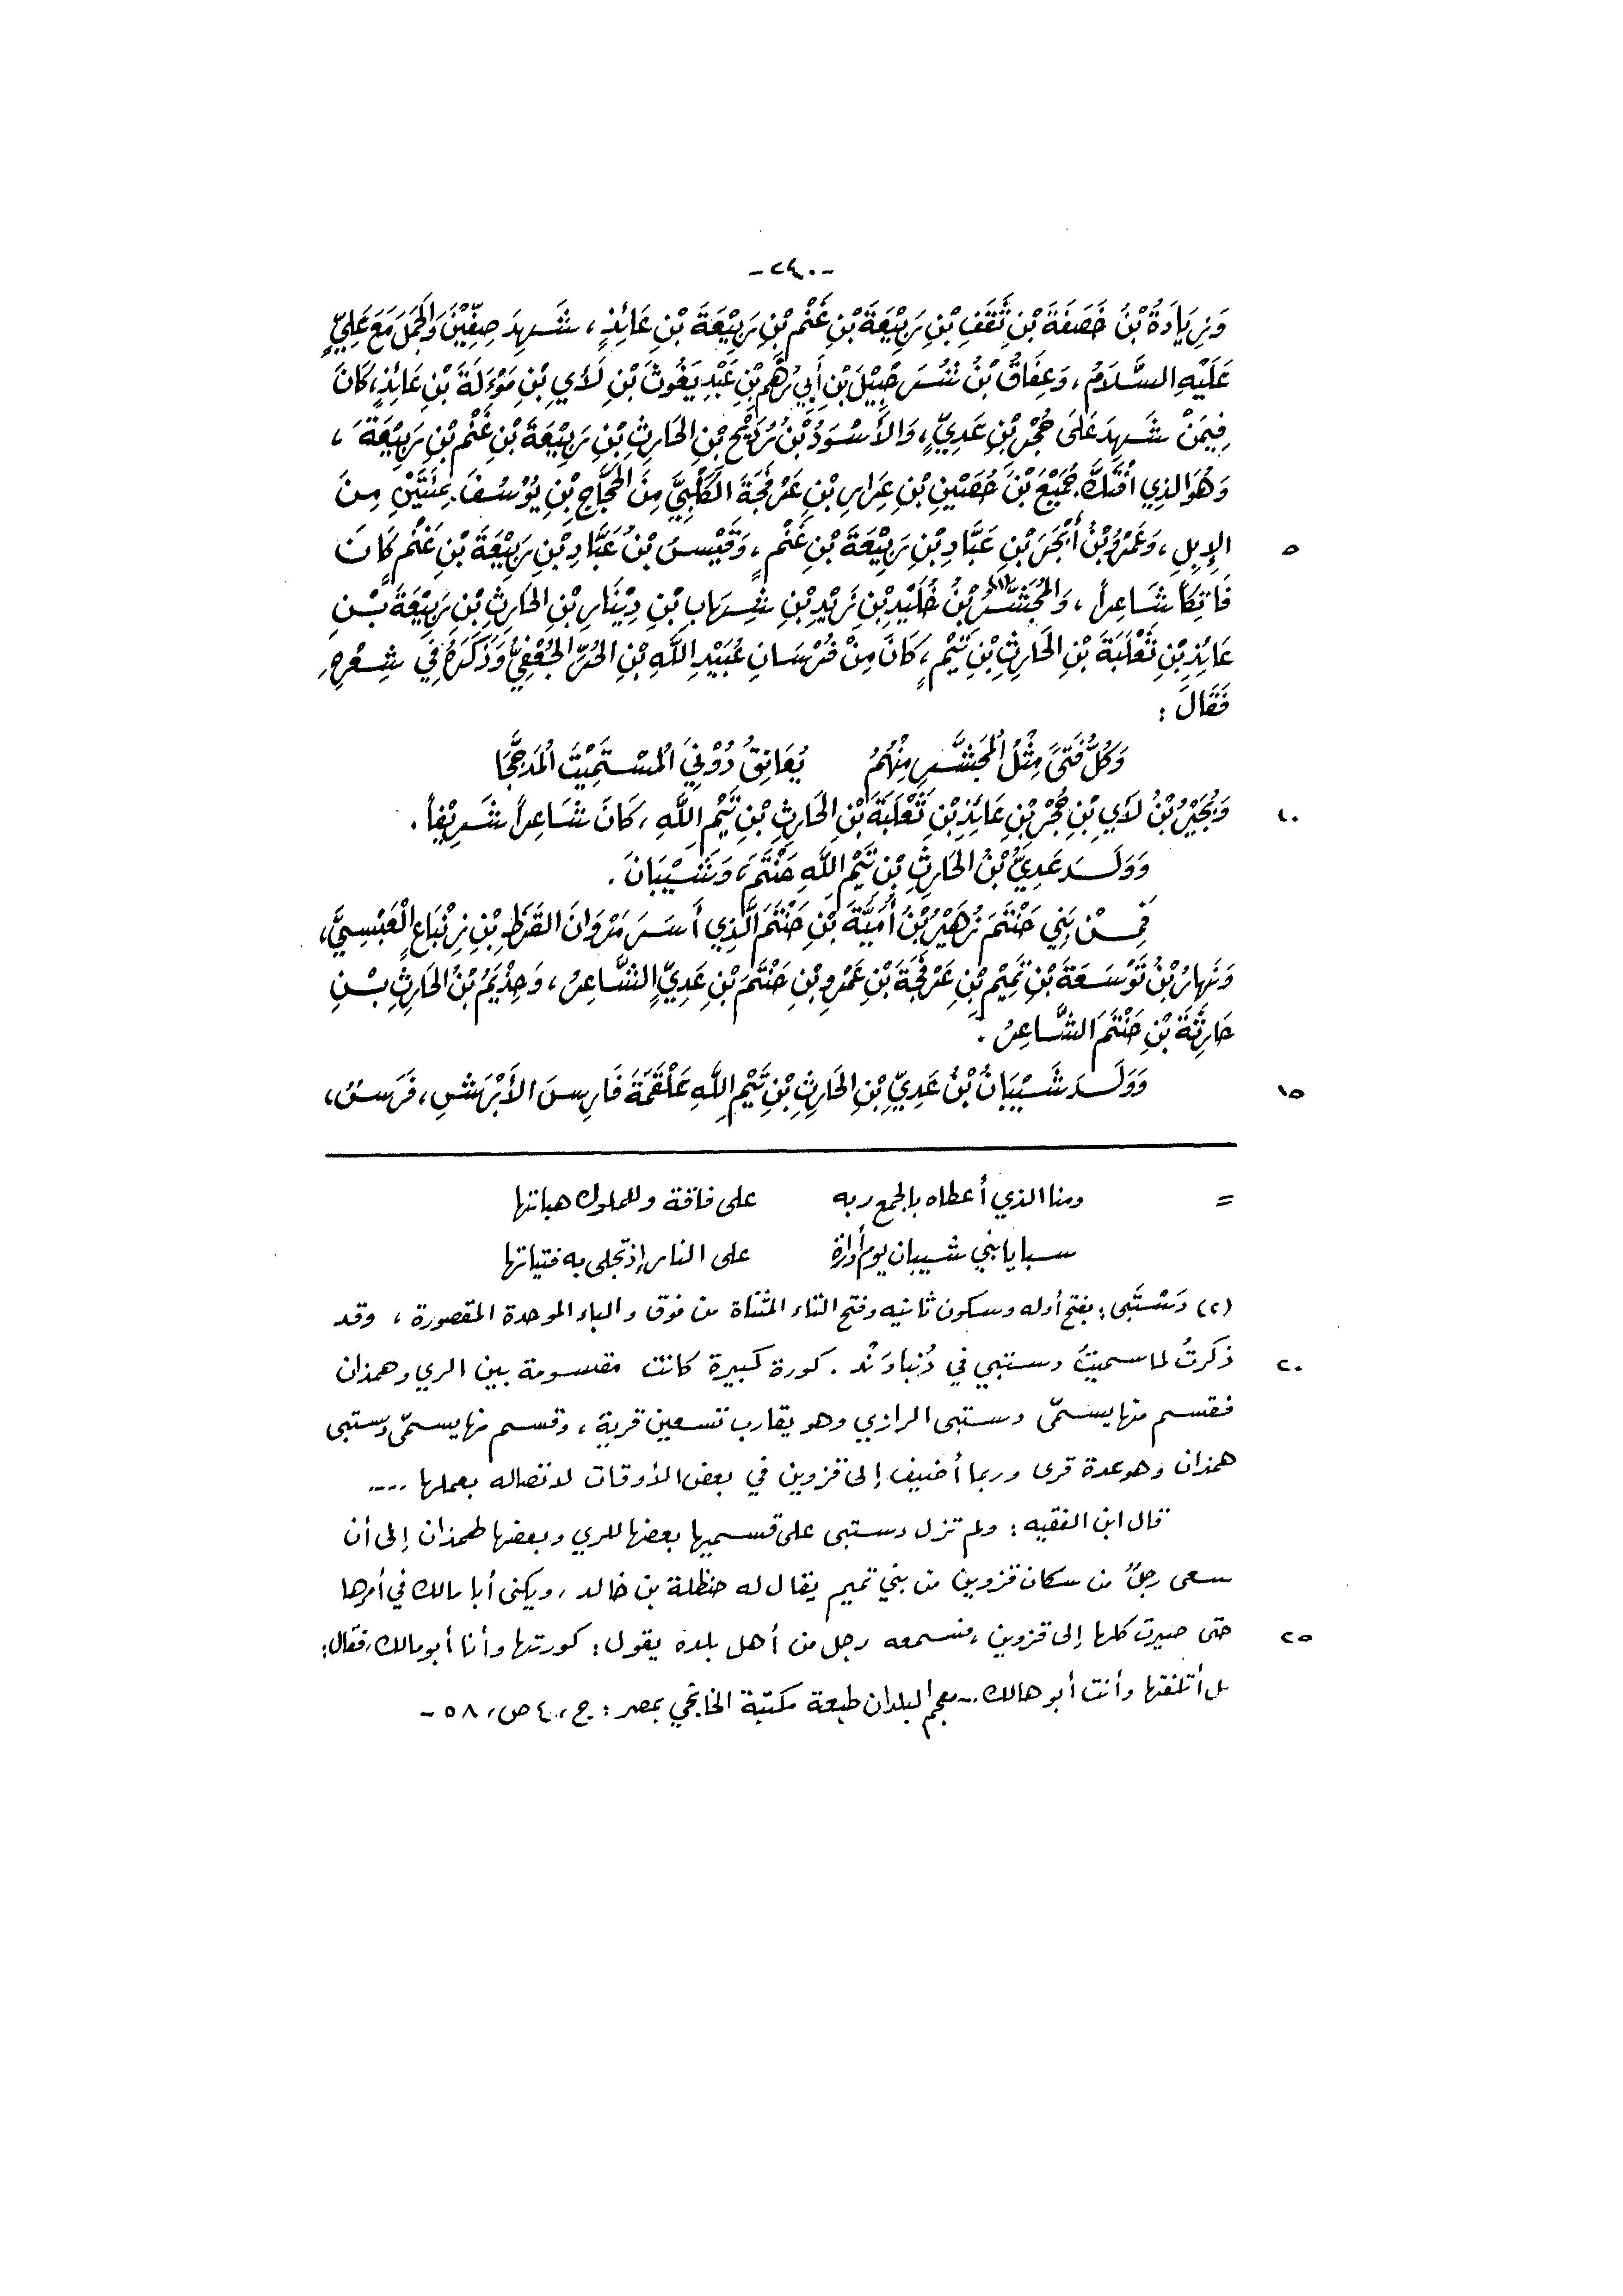 -٢٤٠-
وَزِيَادَةُ بْنُ خَصَفَةَ بْنِ ثَقَفِ بْنِ رَبِيْعَةَ بْنِ غَنْمِ بْنِ رَبِيْعَةَ بْنِ عَائِذٍ، شَهِدَ صِفِّيْنَ وَالجَمَلَ مَعَ عَلِيٍّ
عَلَيْهِ السَّلَامُ، وَعِفَاقُ بْنُ شُرَحْبِيْلَ بْنِ أَبِي رُهْمِ بْنِ عَبْدِ يَغُوثَ بْنِ لَأيِ بْنِ مَوْءَلَةَ بْنِ عَائِذٍ، كَانَ
فِيمَنْ شَهِدَ عَلَى حُجْرِ بْنِ عَدِيٍّ، وَالأَسْوَدُ بْنُ رُدَيْحِ بْنِ الحَارِثِ بْنِ رَبِيْعَةَ بْنِ غَنْمِ بْنِ رَبِيْعَةَ،
وَهُوَ الذِي افْتَكَّ جُمَيْعَ بْنَ حُصَيْنِ بْنِ عِرَارِ بْنِ عَرْفَجَةَ الكَلْبِيَّ مِنَ الحَجَّاجِ بْنِ يُوْسُفَ بِمِئَتَيْنِ مِنَ
٥ الإِبِلِ، وَعَمْرُو بْنُ أَبْجَرَ بْنِ عَبَّادِ بْنِ رَبِيْعَةَ بْنِ غَنْمٍ، وَقَيْسُ بْنُ عَبَّادِ بْنِ رَبِيْعَةَ بْنِ غَنْمٍ كَانَ
فَاتِكاً شَاعِراً، وَالمُجَشَّرُ بْنُ خُلَيْدِ بْنِ زَيْدِ بْنِ شِهَابِ بْنِ دِيْنَارِ بْنِ الحَارِثِ بْنِ رَبِيْعَةَ بْنِ
عَائِذِ بْنِ ثَعْلَبَةَ بْنِ الحَارِثِ بْنِ تَيْمٍ، كَانَ مِنْ فُرْسَانِ عُبَيْدِ اللَّهِ بْنِ الحُرِّ الجُعْفِيُّ وَذَكَرَهُ فِي شِعْرِهِ
فَقَالَ:
وَكُلُّ فَتَىً مِثْلُ المُجَشَّرِ مِنْهُمُ يُعَانِقُ دُوْنِيَ المُسْتَمِيْتَ المُدَجَّجَا
١٠ وَبُجَيْرُ بْنُ لَأيِ بْنِ حُجْرِ بْنِ عَائِذِ بْنِ ثَعْلَبَةَ بْنِ الحَارِثِ بْنِ تَيْمِ اللَّهِ، كَانَ شَاعِراً شَرِيْفاً.
وَوَلَدَ عَدِيُّ بْنُ الحَارِثِ بْنِ تَيْمِ اللَّهِ حَنْتَمَ، وَشَيْبَانَ.
فَمِنْ بَنِي حَنْتَمَ زُهَيْرُ بْنُ أُمَيَّةَ بْنِ حَنْتَمَ الَّذِي أَسَرَ مَرْوَانَ القَرَظِ بْنِ زِنْبَاعٍ الْعَبْسِيَّ،
وَنَهَارُ بْنُ تَوْسَعَةَ بْنِ تَمِيْمِ بْنِ عَرْفَجَةَ بْنِ عَمْرِو بْنِ حَنْتَمَ بْنِ عَدِيٍّ الشَّاعِرُ، وَحِذْيَمُ بْنُ الحَارِثِ بْنِ
حَارِثَةَ بْنِ حَنْتَمَ الشَّاعِرُ.
١٥ وَوَلَدَ شَيْبَانُ بْنُ عَدِيِّ بْنِ الحَارِثِ بْنِ تَيْمِ اللَّهِ عَلْقَمَةَ فَارِسَ الأَبْرَشِ، فَرَسٌ،
= ومنا الذي أعطاه بالجمع ربه على فاقة وللملوك هباتها
سبايا بني شيبان يوم أوارة على النار إذ تجلى به فتياتها
(٢) دَسْتَبى: بفتح أوله وسكون ثانيه وفتح التاء المثناة من فوق والباء الموحدة المقصورة، وقد
٢٠ ذكرتُ لما سميتْ دستبي في دُنباوَنْد. كورة كبيرة كانت مقسومة بين الري وهمذان
فقسم منها يسمّى دستبى الرازي وهو يقارب تسعين قرية، وقسم منها يسمّى دستبى
همذان وهو عدة قرى وربما أضيف إلى قزوين في بعض الأوقات لاتصاله بعملها ....
قال ابن الفقيه: ولم تزل دستبى على قسميها بعضها للري وبعضها لهمذان إلى أن
سعى رجلٌ من سكان قزوين من بني تميم يقال له حنظلة بن خالد، ويكنى أبا مالك في أمرها
٢٥ حتى صيرت كلها إلى قزوين، فسمعه رجل من أهل بلده يقول: كورتها وأنا أبو مالك، فقال:
بل أتلفتها وأنت أبو هالك.- معجم البلدان طبعة مكتبة الخانجي بمصر: ج، ٤ ص، ٥٨ -